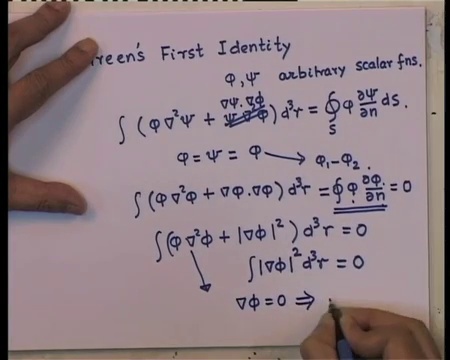 reen's First Identity
φ, Ψ arbitrary scalar fns.
∇Ψ.∇φ
∫ (φ∇²Ψ + Ψ ∇²φ) d³r = ∮ₛ φ ∂Ψ/∂n ds.
φ = Ψ = φ → φ₁-φ₂.
∫ (φ∇²φ + ∇φ.∇φ) d³r = ∮ φ ∂φ/∂n = 0
∫(φ∇²φ + |∇φ|²) d³r = 0
∫|∇φ|² d³r = 0
∇φ = 0 ⇒